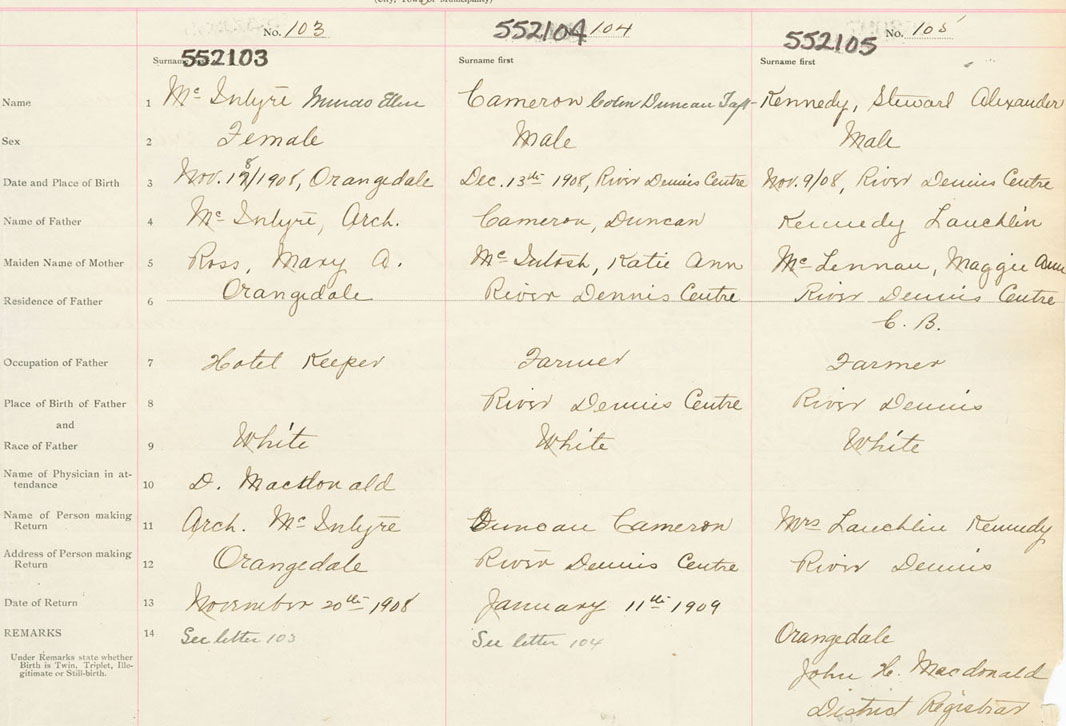 (City, Town or Municipality)
No. 103
552104 104
No. 105
552103
552105
Surname first
Surname first
Name 1 Mc Intyre Murdo Ellen Cameron Colin Duncan Kennedy, Stewart Alexander
Sex 2 Female Male Male
Date and Place of Birth 3 Nov. 18/1908, Orangedale Dec. 13th 1908, River Dennis Centre Nov. 9/08, River Dennis Centre
Name of Father 4 Mc Intyre, Arch. Cameron, Duncan Kennedy Lauchlin
Maiden Name of Mother 5 Ross, Mary A. Mc Intosh, Katie Ann Mc Lennan, Maggie Ann
Residence of Father 6 Orangedale River Dennis Centre River Dennis Centre
C. B.
Occupation of Father 7 Hotel Keeper Farmer Farmer
Place of Birth of Father 8 River Dennis Centre River Dennis
and
Race of Father 9 White White White
Name of Physician in at-
tendance 10 D. Macdonald
Name of Person making
Return 11 Arch. Mc Intyre Duncan Cameron Mrs Lauchlin Kennedy
Address of Person making
Return 12 Orangedale River Dennis Centre River Dennis
Date of Return 13 November 20th 1908 January 11th 1909
REMARKS 14 See letter 103 See letter 104 Orangedale
Under Remarks state whether
Birth is Twin, Triplet, Ille-
gitimate or Still-birth.
John H. Macdonald
District Registrar